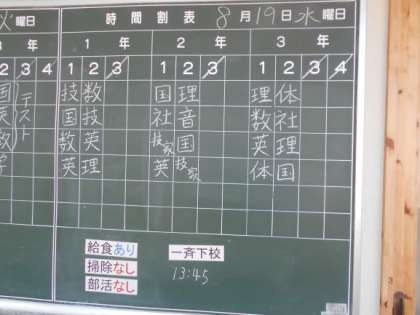 火曜日 時間割表 8月19日水曜日
3年 1年 2年 3年
2 3 4 1 2 3 1 2 3 1 2 3 4
国 テスト 技 数 国 理 理 体
英 国 技 社 音 数 社
数 数 英 技家 国 英 理
学 英 理 英 技家 体 国
給食あり 一斉下校
掃除なし 13:45
部活なし